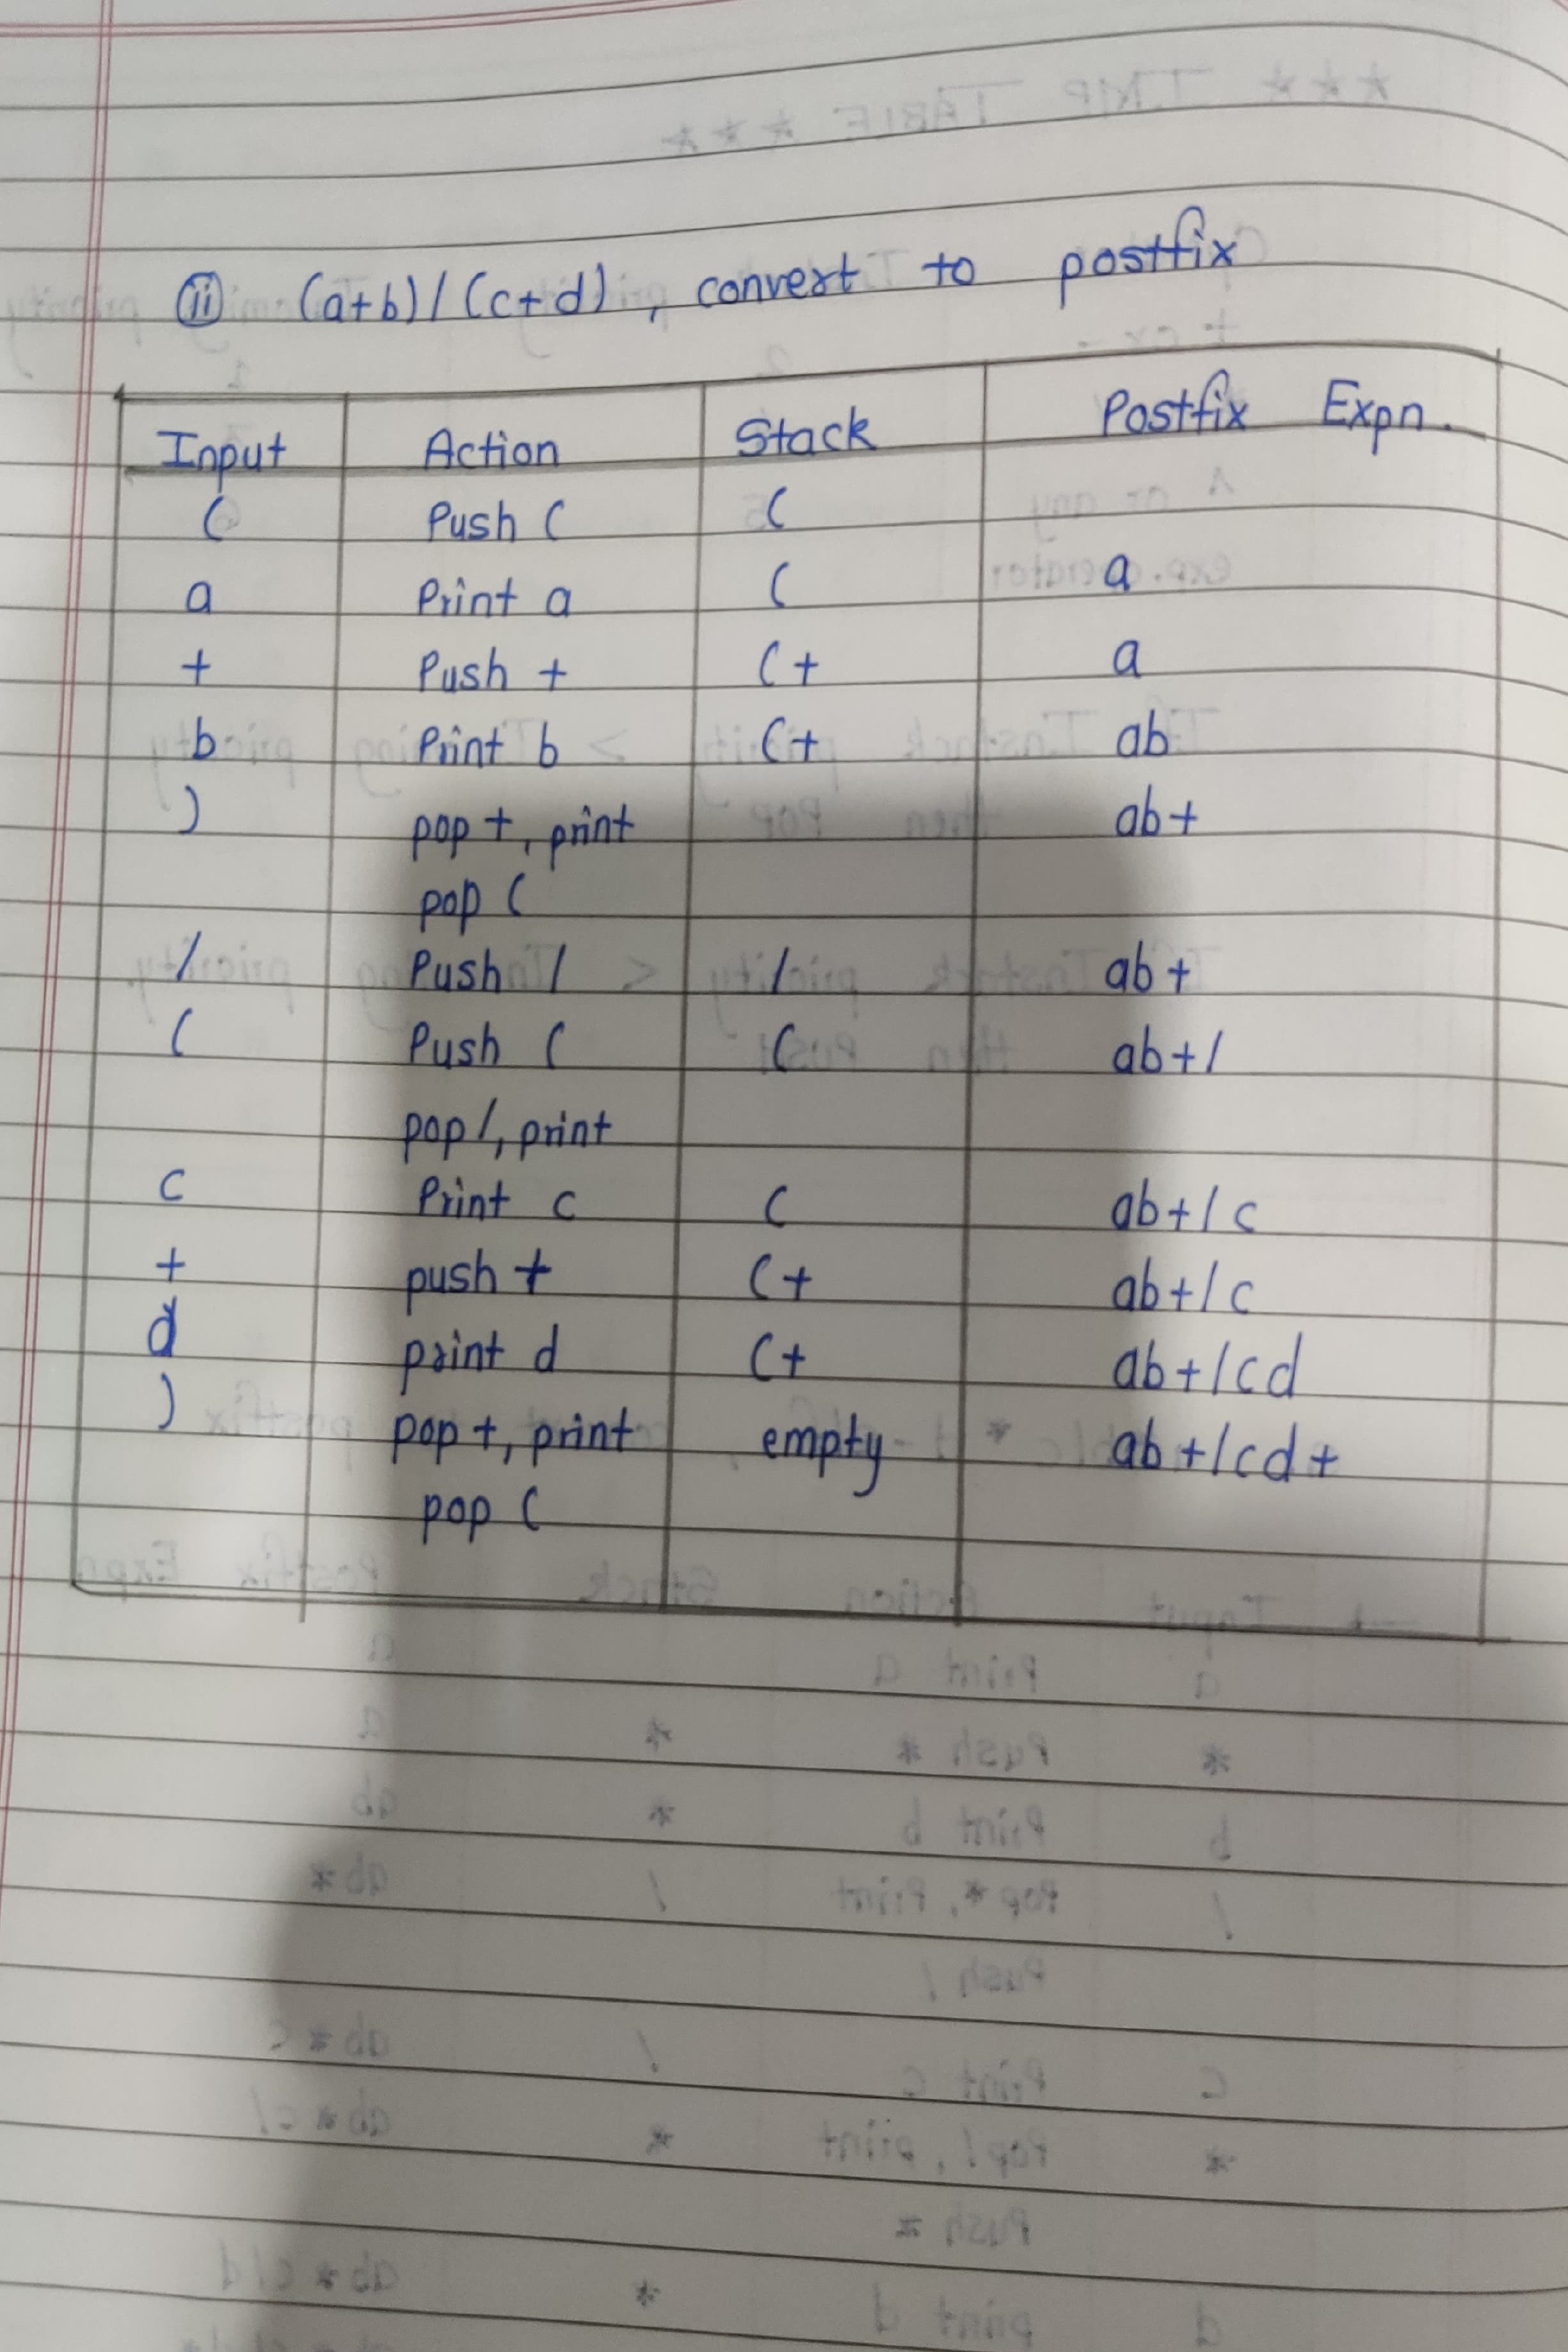 (ii) (a+b)/(c+d), convert to postfix
Input Action Stack Postfix Expn.
( Push ( (
a Print a ( a
+ Push + (+ a
b Print b (+ ab
) pop +, print ab+
pop (
/ Push / / ab+
( Push ( ( ab+/
pop /, print
c Print c ( ab+/c
+ push + (+ ab+/c
d print d (+ ab+/cd
) pop +, print empty ab+/cd+
pop (